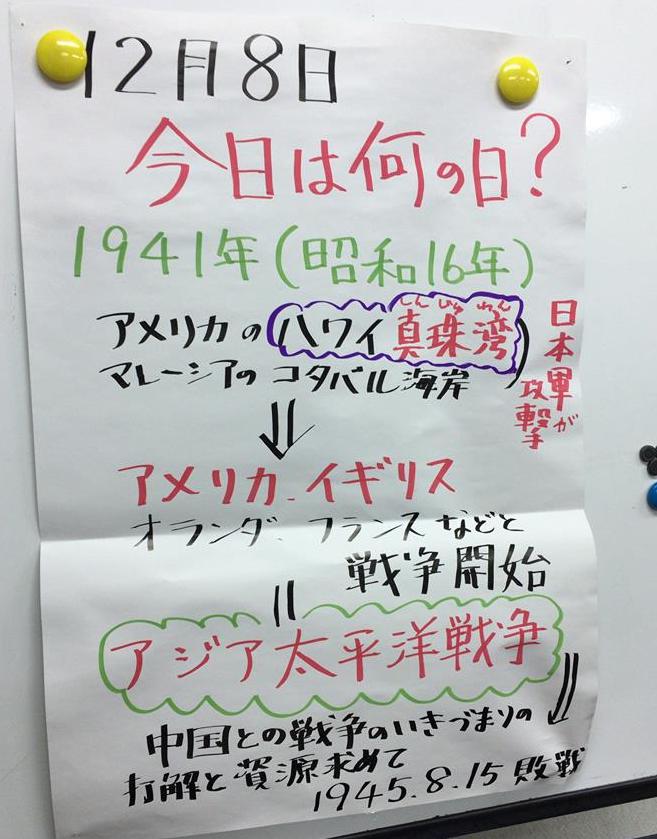 12月8日
今日は何の日?
1941年(昭和16年)
アメリカのハワイ真珠湾
しんじゅわん
マレーシアのコタバル海岸
日本軍が
攻撃
アメリカ、イギリス
オランダ、フランスなどと
戦争開始
アジア太平洋戦争
中国との戦争のいきづまりの
打解と資源求めて
1945.8.15敗戦